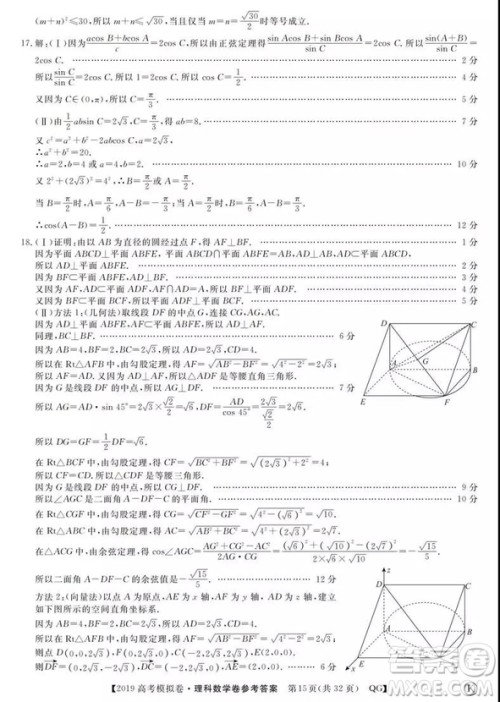 (m+n)²≤30,所以 m+n≤√30,当且仅当 m=n=√30/2 时等号成立.
17.解:(Ⅰ)因为 (acos B+bcos A)/c=2cos C,所以由正弦定理得 (sin Acos B+sin Bcos A)/sin C=2cos C.所以 sin(A+B)/sin C
=2cos C. 2 分
所以 sin C/sin C=2cos C.所以 1=2cos C.所以 cos C=1/2. 4 分
又因为 C∈(0,π),所以 C=π/3. 5 分
(Ⅱ)由 1/2 absin C=2√3,C=π/3,得 ab=8. 7 分
又 c²=a²+b²-2abcos C,a=2√3,
∴a²+b²=20.
∴a=2,b=4 或 a=4,b=2. 10 分
又 2²+(2√3)²=4²,
∴B=π/2 或 A=π/2.
当 B=π/2 时,A=π/6;当 A=π/2 时,B=π/6.
∴cos(A-B)=1/2. 12 分
18.(Ⅰ)证明:由以 AB 为直径的圆经过点 F,得 AF⊥BF.
因为平面 ABCD⊥平面 ABFE,平面 ABCD∩平面 ABFE=AB,AD⊥AB,AD⊂平面 ABCD,
所以 AD⊥平面 ABFE. 2 分
因为 BF⊂平面 ABFE,所以 AD⊥BF. 3 分
又因为 AF⊂平面 ADF,AD⊂平面 ADF,AF∩AD=A,所以 BF⊥平面 ADF. 4 分
又因为 BF⊂平面 BCF,所以平面 ADF⊥平面 BCF. 5 分
(Ⅱ)方法 1:(几何法)取线段 DF 的中点 G,连接 CG,AG,AC.
因为 AD⊥平面 ABFE,AF⊂平面 ABFE,所以 AD⊥AF.
同理,BC⊥BF. 6 分
因为 AB=4,BF=2,BC=2√3,所以 AD=2√3,CD=4.
所以在 Rt△AFB 中,由勾股定理,得 AF=√(AB²-BF²)=√(4²-2²)=2√3.
所以 AF=AD.又因为 AD⊥AF,所以△ADF 是等腰直角三角形.
因为 G 是线段 DF 的中点,所以 AG⊥DF. 7 分
所以 AG=AD·sin 45°=2√3×√2/2=√6,DF=AD/cos 45°=2√3/(√2/2)=2√6.
所以 DG=GF=1/2 DF=√6.
在 Rt△BCF 中,由勾股定理,得 CF=√(BC²+BF²)=√((2√3)²+2²)=4.
所以 CD=CF.
因为 G 是线段 DF 的中点,所以 CG⊥DF. 9 分
所以∠AGC 是二面角 A-DF-C 的平面角. 10 分
在 Rt△ABC 中,由勾股定理,得 AC=√(AB²+BC²)=√(4²+(2√3)²)=2√7.
在△ACG 中,由余弦定理,得 cos∠AGC=(AG²+CG²-AC²)/(2AG·CG)=((√6)²+(√10)²-(2√7)²)/(2×√6×√10)=-√15/5.
所以二面角 A-DF-C 的余弦值是-√15/5. 12 分
方法 2:(向量法)以点 A 为原点,AE 为 x 轴,AB 为 y 轴,AD 为 z 轴,建立
如下图所示的空间直角坐标系.
因为 AB=4,BF=2,BC=2√3,所以 AD=2√3.
所以在 Rt△AFB 中,由勾股定理,得 AF=√(AB²-BF²)=√(4²-2²)=2√3.
【2019 高考模拟卷·理科数学卷参考答案 第15页(共 32 页) QG】